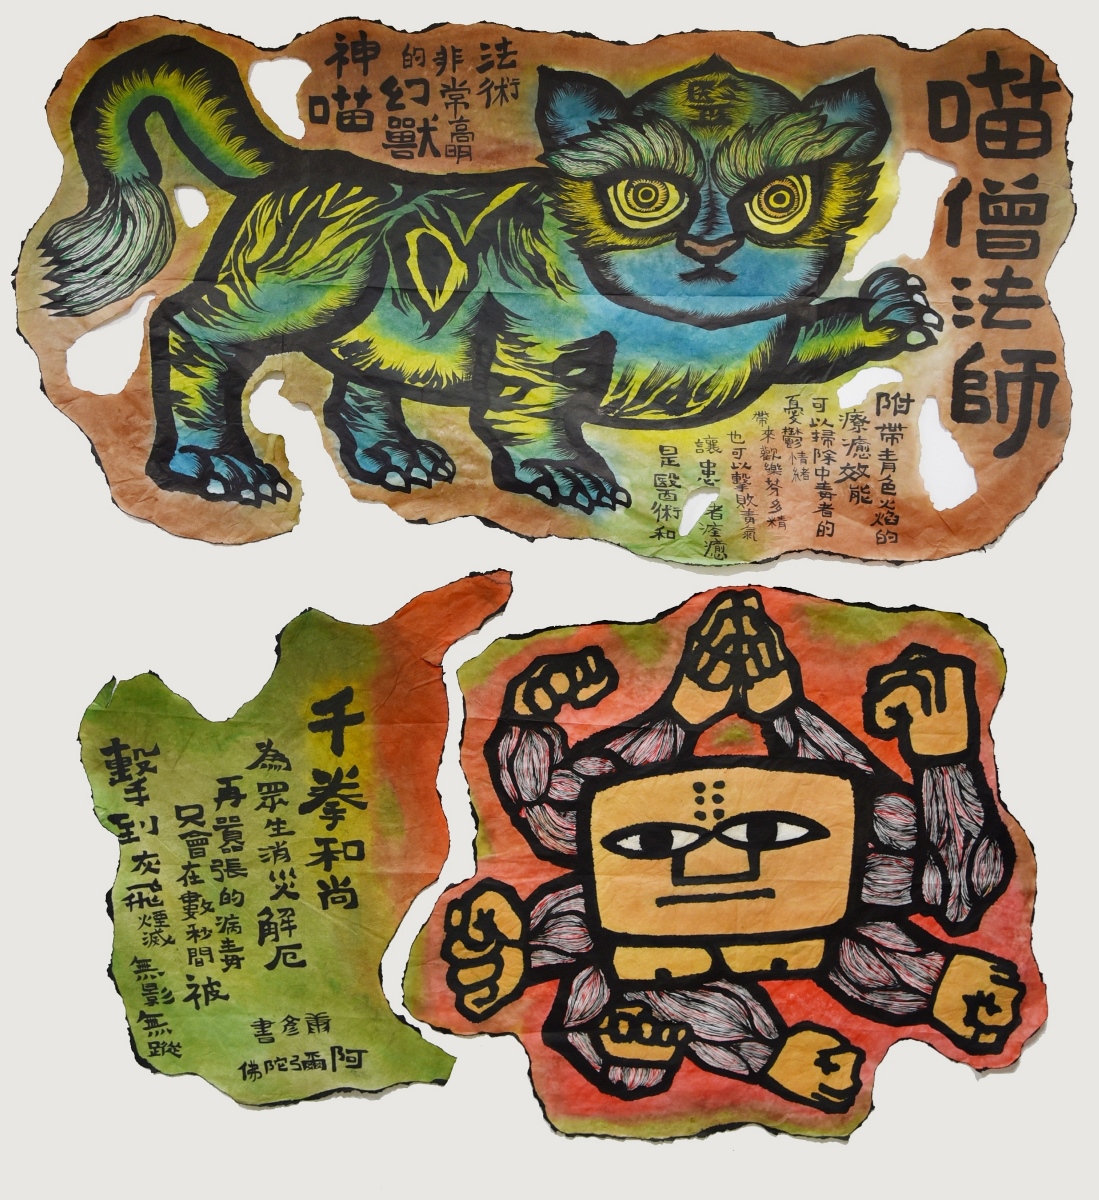 喵僧法師
附帶青色火焰的
療癒效能
可以掃除中毒者的
憂鬱情緒
帶來歡樂芬多精
也可以擊敗毒氣
讓患者痊癒
是醫術和
法術
非常高明
的幻獸
神喵
千拳和尚
為眾生消災解厄
再囂張的病毒
只會在數秒間被
擊到灰飛煙滅無影無蹤
彥書
阿彌陀佛